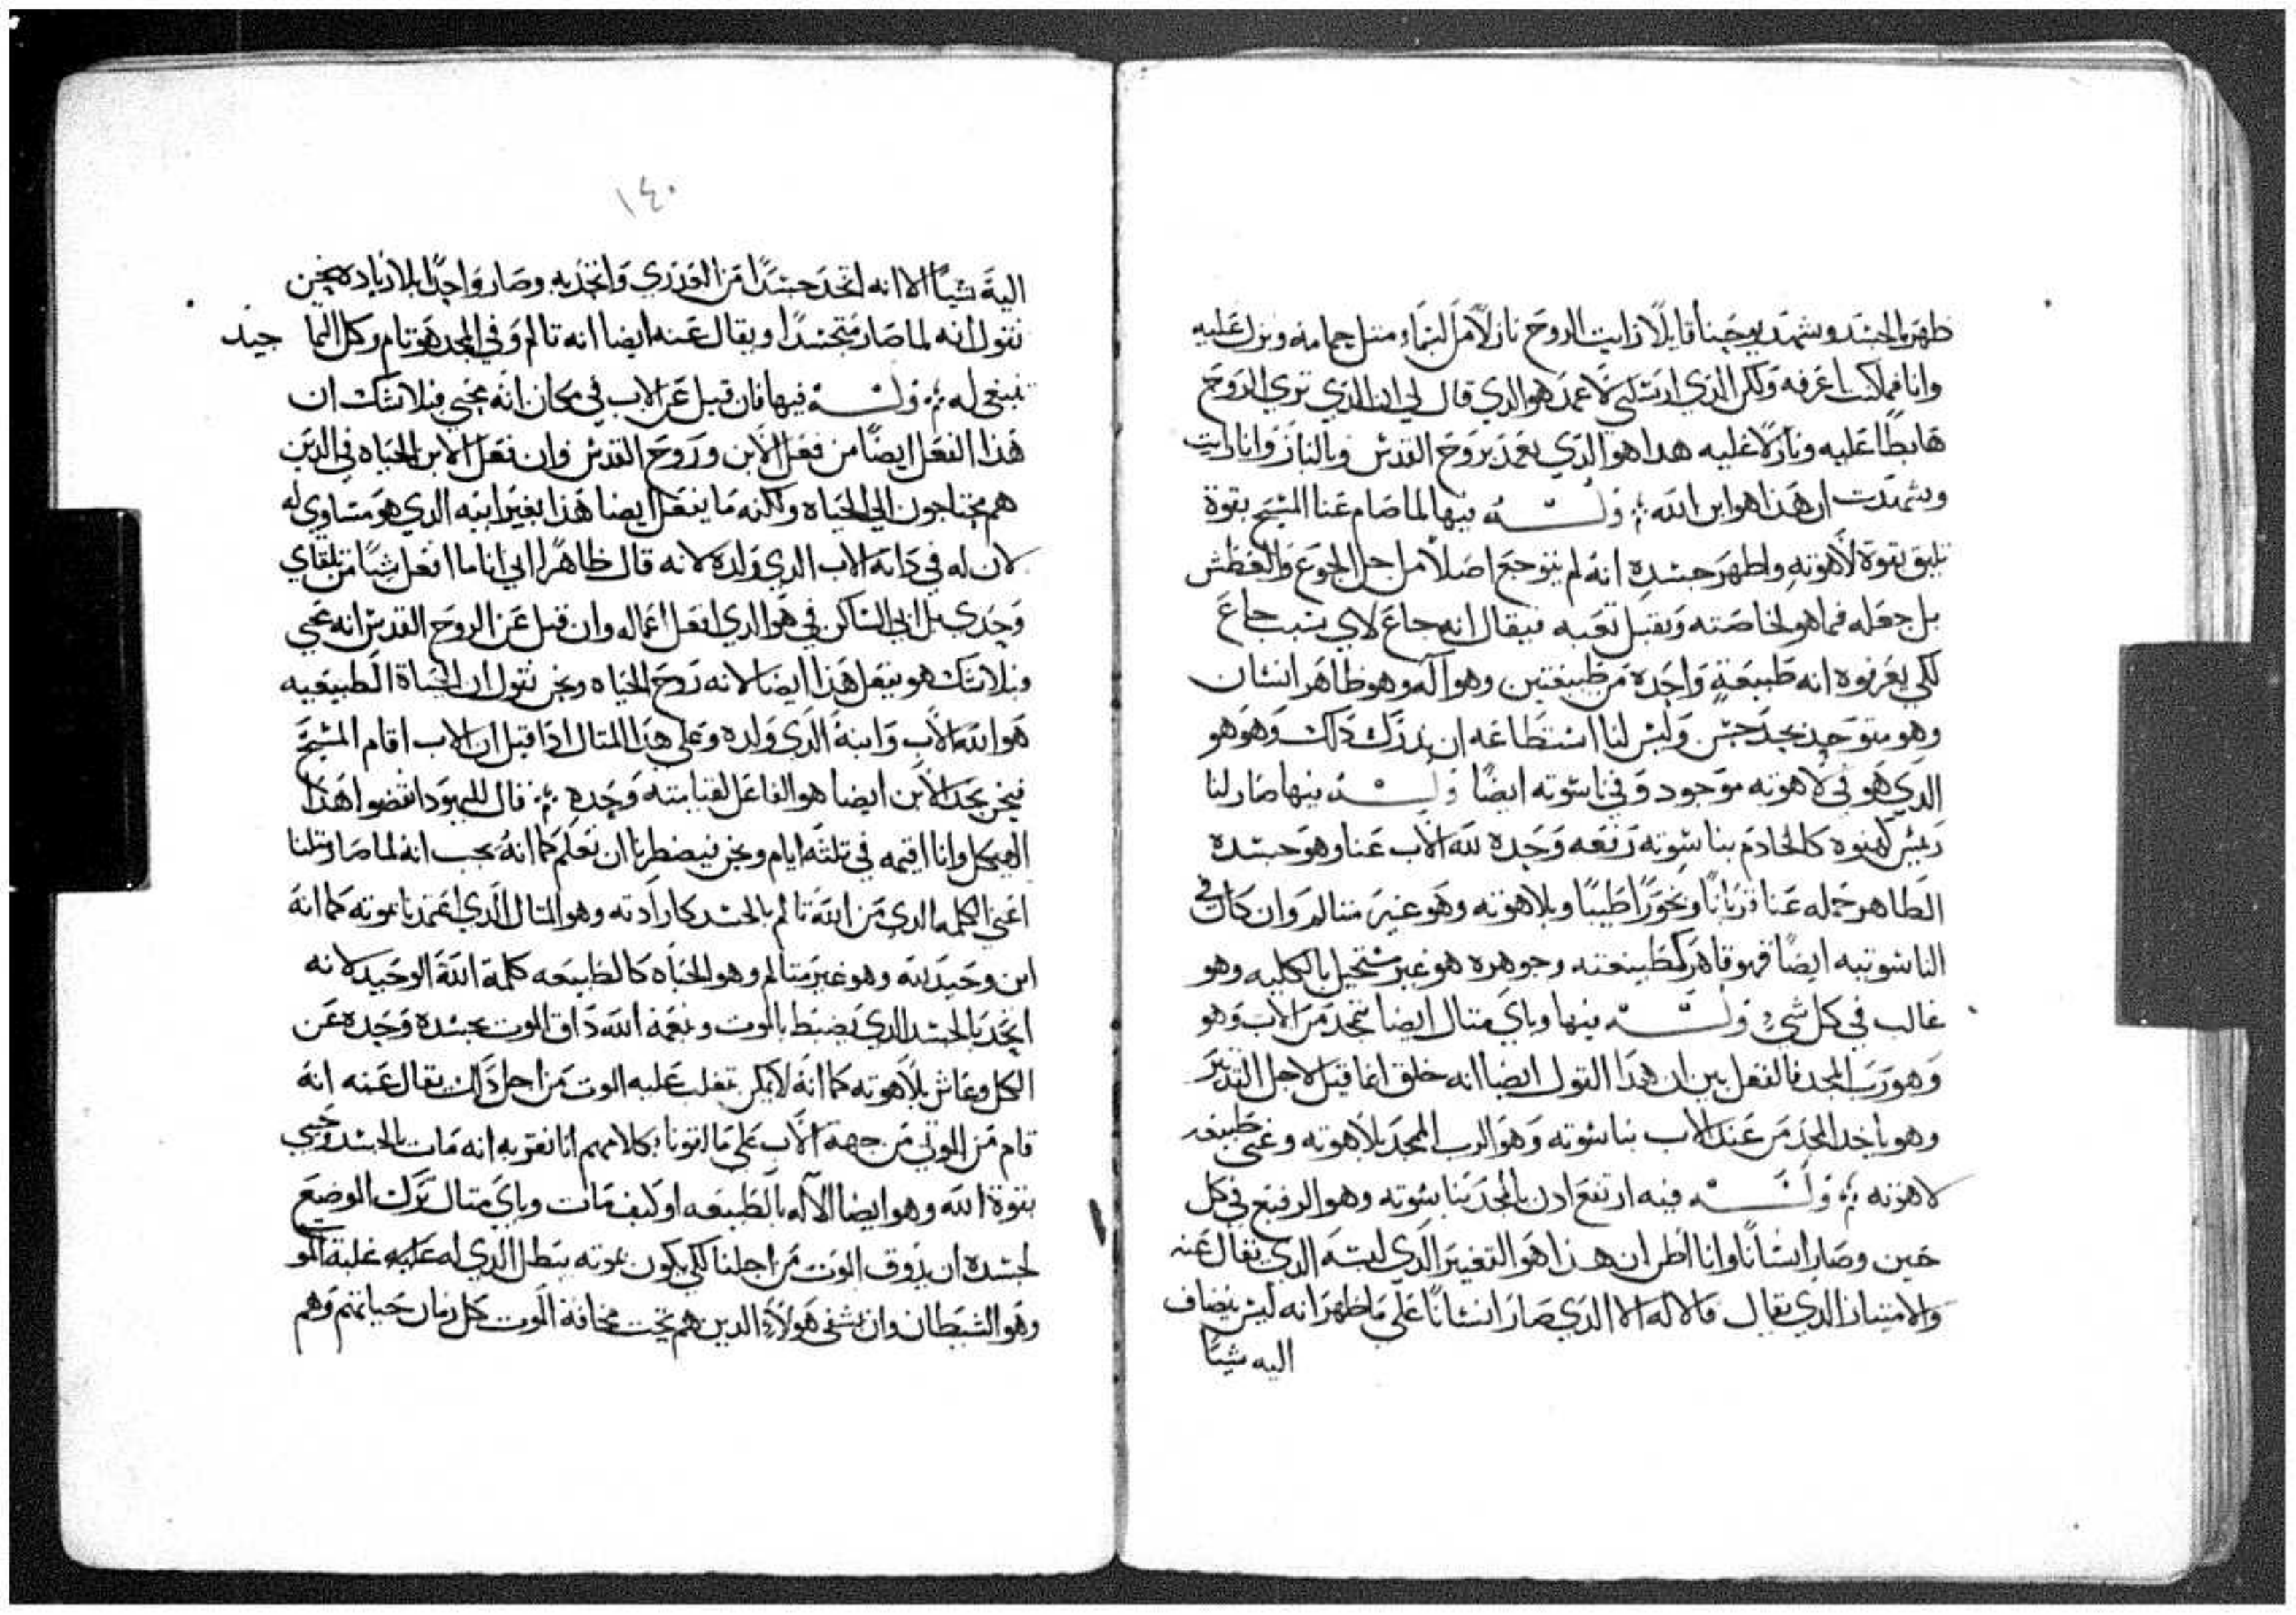 ظهر بالجسد وشهد يوحنا قايلا رايت الروح نازلا من السماء مثل حمامة ونزل عليه
وانا فما كنت اعرفه ولكن الذي ارسلني لاعمد هو الذي قال لي ان الذي ترى الروح
هابطا عليه ونازلا عليه هذا هو الذي يعمد بروح القدس وبالنار وانا رايت
وشهدت ان هذا هو ابن الله وله فيها لما صام عنا المسيح بقوة
تليق بقوة لاهوته واظهر جسده انه لم يتوجع اصلا من اجل الجوع والعطش
بل جعله فما هو لخاصته ويقبل تعبه فيقال انه جاع لاي سبب جاع
لكي يعرفوه انه طبيعة واحدة من طبيعتين وهو اله وهو ظاهر انسان
وهو متوحد بجد حسن وليس لنا استطاعه ان ندرك ذلك وهو هو
الذي هو في لاهوته موجود وفي ناسوته ايضا وله فيها صار لنا
رييس كهنوه كالخادم بناسوته رفعه وحده لله الاب عنا وهو جسده
الطاهر حمله عنا قربانا وبخورا طيبا وبلاهوته وهو غير متالم وان كان في
الناسوتيه ايضا فهو قاهر كطبيعته وجوهره هو غير مستحيل بالكليه وهو
غالب في كل شي وله فيها وباي مثال ايضا يتمجد من الاب وهو
وهو رب المجد فالفعل بين ان هذا القول ايضا انه خلق انما قيل لاجل التدبير
وهو ياخد المجد من عند الاب بناسوته وهو الرب الممجد بلاهوته وغنى طبيعه
لاهوته وله فيه ارتفع ادن بالمجد بناسوته وهو الرفيع في كل
حين وصار انسانا وانا اظن ان هذا هو التغيير الذي لبسه الذي يقال عنه
والامتياز الذي يقال فالاله الا الذي صار انسانا على ما ظهر انه ليس يضاف
اليه شيا
١٤٠
اليه شيا الا انه اتخد جسدا من العذري واتخد به وصار واحدا بلا زياده نحن
نقول انه لما صار متجسدا ويقال عنه ايضا انه تالم وفي المجد هو تام وكل انما جيد
ينبغي له وله فيها فان قيل عن الاب في مكان انه يحيي فبلا شك ان
هذا الفعل ايضا من فعل الابن وروح القدس وان فعل الابن الحياه في الذين
هم محتاجون الي الحياه ولكنه ما يفعل ايضا هذا بغير ابيه الذي هو متساوي له
لان له في ذاته الاب الذي ولده لانه قال ظاهرا اني انا ما افعل شيا من تلقاي
وحدي بل ابي الساكن في هو الذي يفعل اعماله وان قيل عن الروح القدس انه يحيي
فبلا شك هو يفعل هذا ايضا لانه روح الحياه ونحن نقول ان الحياة الطبيعيه
هو الله الاب وابنه الذي ولده وعلي هذا المثال اذا قيل ان الاب اقام المسيح
فنحن نجد الابن ايضا هو الفاعل لقيامته وحده قال لليهود انقضوا هذا
الهيكل وانا اقيمه في ثلثه ايام ونحن فيضطرنا ان نعلم كما انه يجب انه لما صار مثلنا
اعني الكلمه الذي من الله تالم بالجسد كارادته وهو المثال الذي اعتمدنا بموته كما انه
ابن وحيد لله وهو غير متالم وهو الحياه كالطبيعه كلمة الله الوحيد لانه
اتحد بالجسد الذي يضبط بالموت وبنعمة الله ذاق الموت بجسده وحده عن
الكل وعاش بلاهوته كما انه لا يمكن يغلب عليه الموت من اجل ذلك يقال عنه انه
قام من الموتي من جهة الاب علي ما لقونا بكلامهم انا نعترف به انه مات بالجسد وحيي
بقوة الله وهو ايضا الاله بالطبيعه او كيف مات وباي مثال ترك الوضيع
لجسده ان يذوق الموت من اجلنا لكي يكون بموته يبطل الذي له عليه غلبة الموت
وهو الشيطان وان يشفي هولاء الذين هم تحت مخافة الموت كل زمان حياتهم وهم